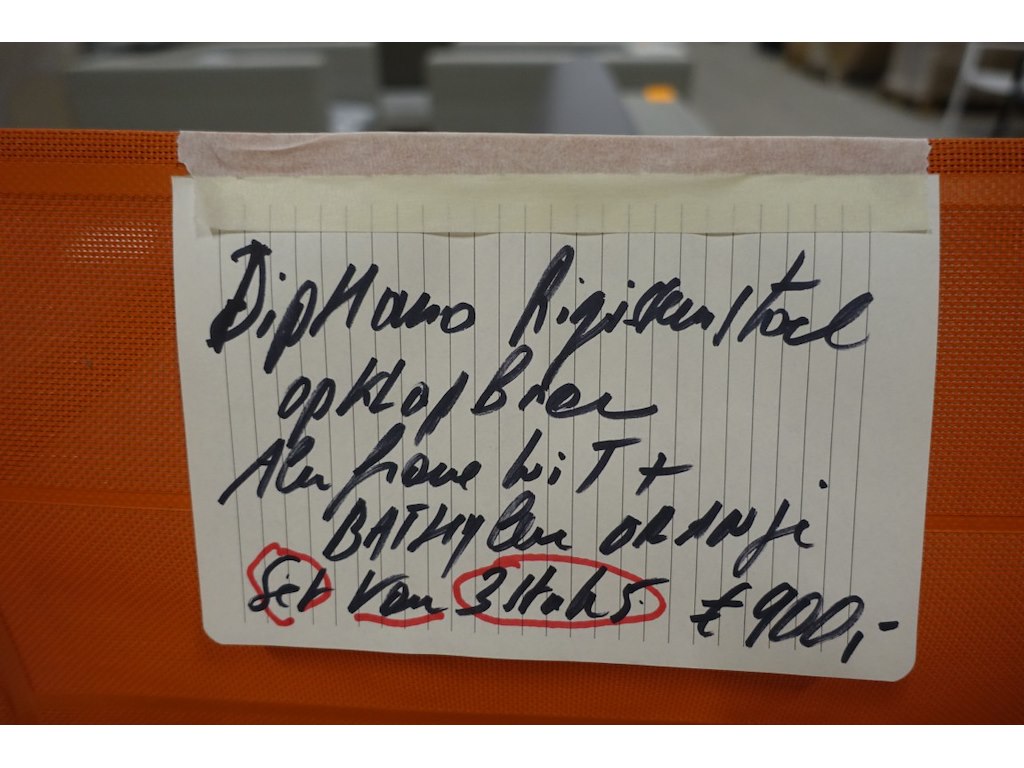 Diphano Rigisseurstoel
opklapBaer
Alu frame wiT +
BATHyline ORANje
Set van 3 stuks. € 900,-